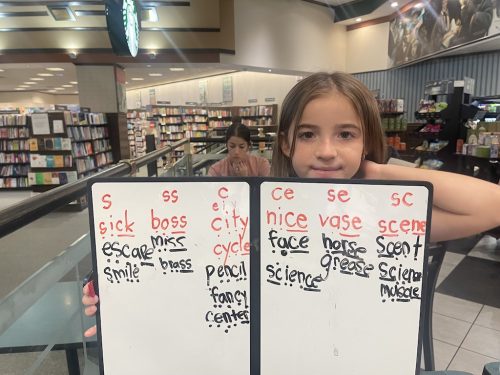 s
sick
escape
smile
ss
boss
miss
brass
c
city
cycle
pencil
fancy
center
ce
nice
face
science
se
vase
horse
grease
sc
scene
Scent
Science
muscle